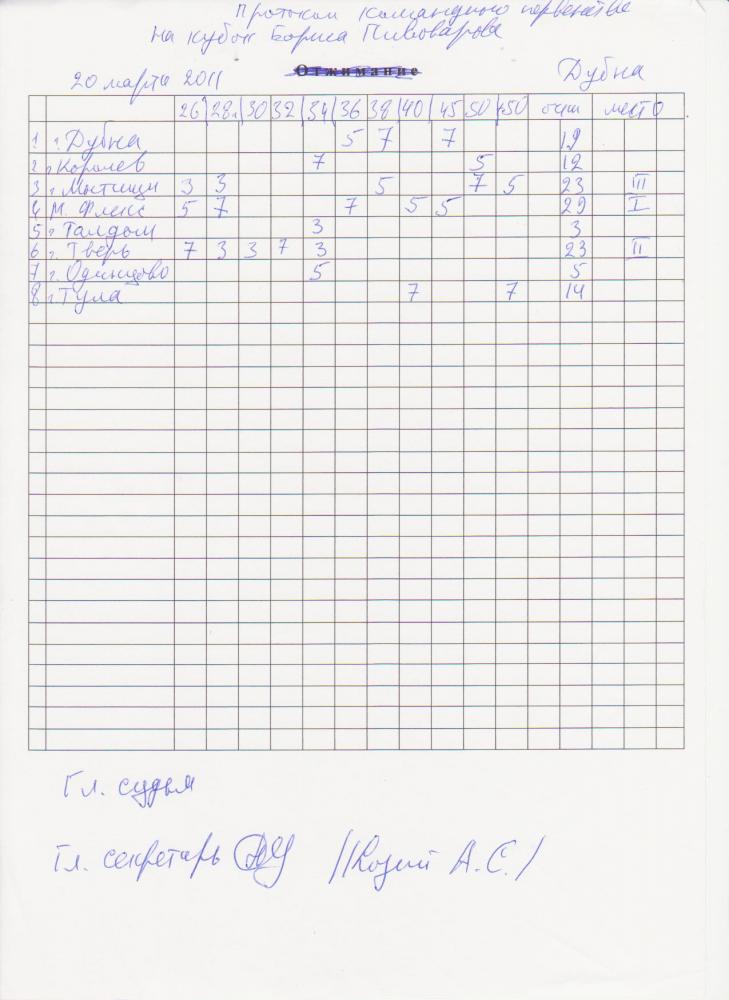 Протокол командного первенства
на кубок Бориса Пивоварова
20 марта 2011 Отжимание Дубна
26 28 30 32 34 36 38 40 45 50 +50 очки место
1 г. Дубна 5 7 7 19
2 г. Королев 7 5 12
3 г. Мытищи 3 3 5 7 5 23 III
4 М. Флекс 5 7 7 5 5 29 I
5 г. Талдом 3 3
6 г. Тверь 7 3 3 7 3 23 II
7 г. Одинцово 5 5
8 г. Тула 7 7 14
Гл. судья
Гл. секретарь /Козий А.С./